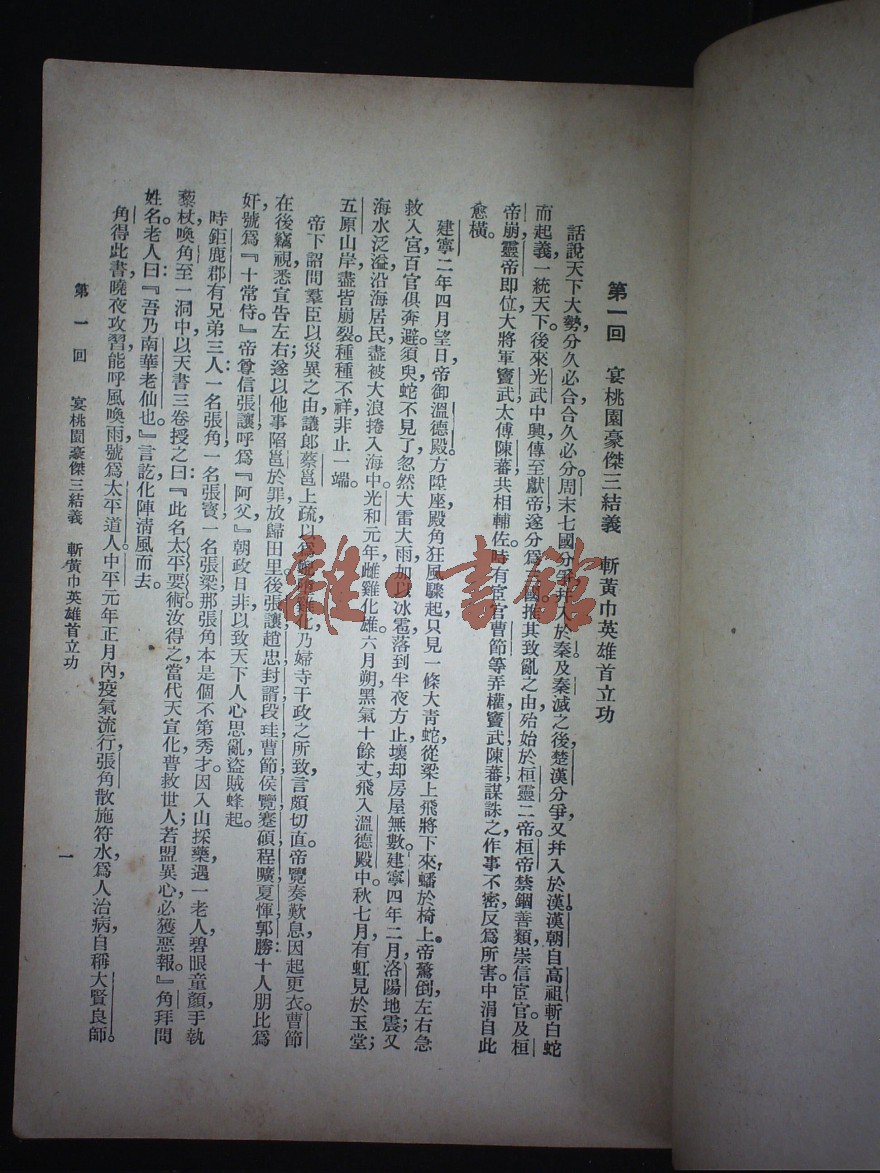 第一回　宴桃園豪傑三結義　斬黃巾英雄首立功
話說天下大勢，分久必合，合久必分。周末七國分爭，幷入於秦；及秦滅之後，楚漢分爭，又幷入於漢。漢朝自高祖斬白蛇
而起義，一統天下。後來光武中興，傳至獻帝，遂分爲三國。推其致亂之由，殆始於桓靈二帝。桓帝禁錮善類，崇信宦官。及桓
帝崩，靈帝即位，大將軍竇武太傅陳蕃，共相輔佐。時有宦官曹節等弄權，竇武陳蕃謀誅之，作事不密，反爲所害。中涓自此
愈橫。
建寧二年四月望日，帝御溫德殿。方陞座，殿角狂風驟起，只見一條大青蛇，從梁上飛將下來，蟠於椅上。帝驚倒，左右急
救入宮，百官俱奔避。須臾，蛇不見了。忽然大雷大雨，加以冰雹，落到半夜方止，壞却房屋無數。建寧四年二月，洛陽地震；又
海水泛溢，沿海居民，盡被大浪捲入海中。光和元年，雌雞化雄。六月朔，黑氣十餘丈，飛入溫德殿中。秋七月，有虹見於玉堂；
五原山岸，盡皆崩裂。種種不祥，非止一端。
帝下詔問羣臣以災異之由，議郎蔡邕上疏，以爲蜺墮雞化，乃婦寺干政之所致，言頗切直。帝覽奏歎息，因起更衣。曹節
在後竊視，悉宣告左右；遂以他事陷邕於罪，放歸田里。後張讓，趙忠，封諝，段珪，曹節，侯覽，蹇碩，程曠，夏惲，郭勝十人朋比爲
奸，號爲『十常侍。』帝尊信張讓，呼爲『阿父，』朝政日非，以致天下人心思亂，盜賊蜂起。
時鉅鹿郡有兄弟三人：一名張角，一名張寶，一名張梁。那張角本是個不第秀才。因入山採藥，遇一老人，碧眼童顏，手執
藜杖，喚角至一洞中，以天書三卷授之，曰：『此名太平要術。汝得之，當代天宣化，普救世人；若萌異心，必獲惡報。』角拜問
姓名。老人曰：『吾乃南華老仙也。』言訖，化陣清風而去。
角得此書，曉夜攻習，能呼風喚雨，號爲太平道人。中平元年正月內，疫氣流行，張角散施符水，爲人治病，自稱大賢良師。
第一回　宴桃園豪傑三結義　斬黃巾英雄首立功
一
雜·書館